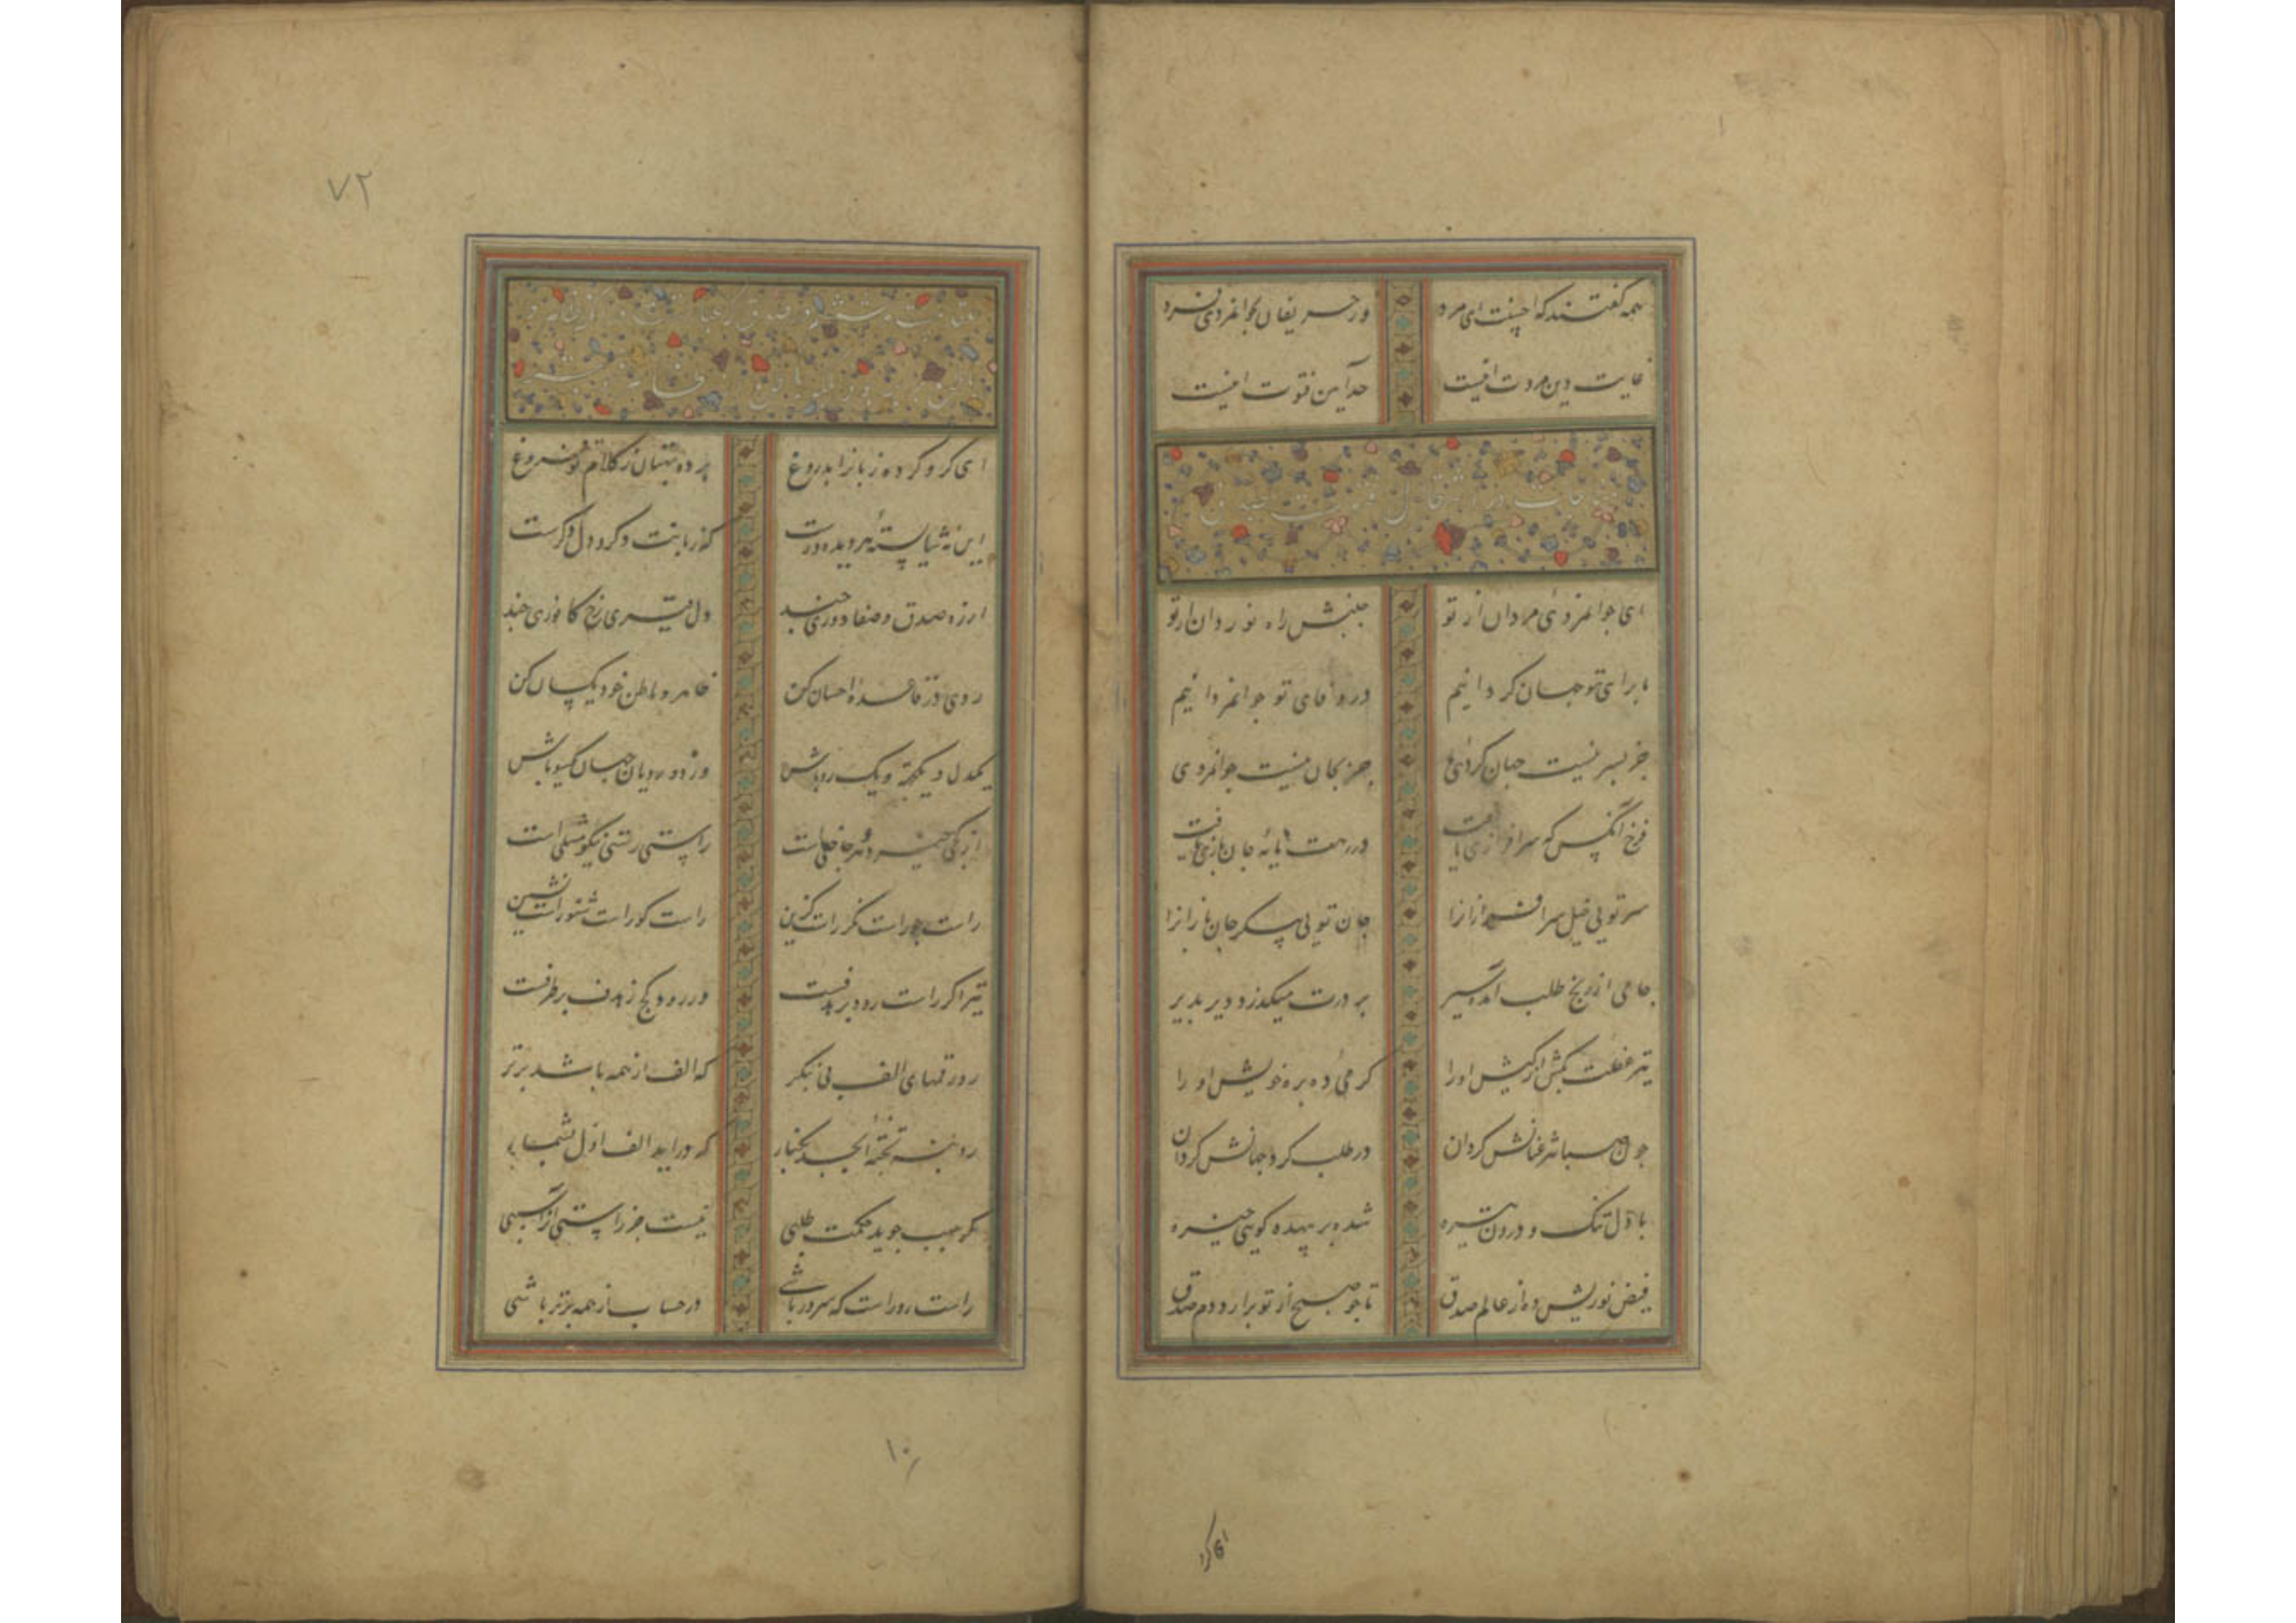 همه گفتند که احسنت ای مرد
ورحریفان بجوانمردی فرد
غایت دین مروت اینست
حد آیین فتوت اینست
مناجات در انتقال از فتوت بصدق
ای جوانمردئ مردان از تو
جنبش راه نوردان از تو
با برای تو جهان کردانیم
در وفای تو جوانمردانیم
جز بسر نیست جهان کردئ ما
جز بجان نیست جوانمردی
فرخ آنکس که سرافرازی یافت
در رهت پایه جان بازی یافت
سر تویی خیل سرافرازانرا
جان تویی پیکر جان بازانرا
جامی از رنج طلب آمده سیر
بر درت میگذرد دیر بدیر
تیر غفلت بکش از کیش اورا
کرمی ده بره خویش اورا
چون صبا شرعنانش کردان
در طلب کرد جهانش کردان
با دل تنک و درون تیره
شده بر بیهده کویی خیره
فیض نوریش ده از عالم صدق
تا چو صبح از تو برارد دم صدق
ای کرو
۷۲
ای کرو کرده زبانرا بدروغ
برده بهتان ز کلام تو فروغ
این نه شایسته هر دیده ورست
که زبانت دکر و دل دکرست
از ره صدق و صفا دوری چند
دل قیری رخ کافوری چند
روی در قاعده احسان کن
ظاهر و باطن خود یکسان کن
یکدل و یکجهة و یک رو باش
وز دو رویان جهان یکسو باش
از کجی خیزد هر جا خللیست
راستی رستی نیکو مثلی است
راست جو راست نکر راست کزین
راست کو راست شنو راست نشین
تیر اکر راست رود بر هدفست
ور رود کج ز هدف بر طرفست
رو رقمهای الف بی بنکر
که الف از همه باشد برتر
رو بنه تخته ابجد بکنار
که درآید الف اول بشمار
کر حسیب جوید حکمت طلبی
نیست جز راستی آنرا سببی
راست رو راست که سرور باشی
در حساب از همه برتر باشی
۱۰